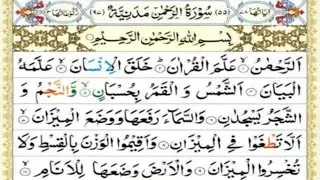 سُوْرَةُ الرَّحْمٰنِ مَدَنِيَّةٌ
بِسْمِ اللّٰهِ الرَّحْمٰنِ الرَّحِيْمِ
اَلرَّحْمٰنُ ۙ عَلَّمَ الْقُرْاٰنَ ؕ خَلَقَ الْاِنْسَانَ ۙ عَلَّمَهُ
الْبَيَانَ اَلشَّمْسُ وَ الْقَمَرُ بِحُسْبَانٍ وَّالنَّجْمُ وَ
الشَّجَرُ يَسْجُدٰنِ وَالسَّمَآءَ رَفَعَهَا وَوَضَعَ الْمِيْزَانَ
اَلَّا تَطْغَوْا فِي الْمِيْزَانِ وَاَقِيْمُوا الْوَزْنَ بِالْقِسْطِ وَلَا
تُخْسِرُوا الْمِيْزَانَ وَالْاَرْضَ وَضَعَهَا لِلْاَنَامِ